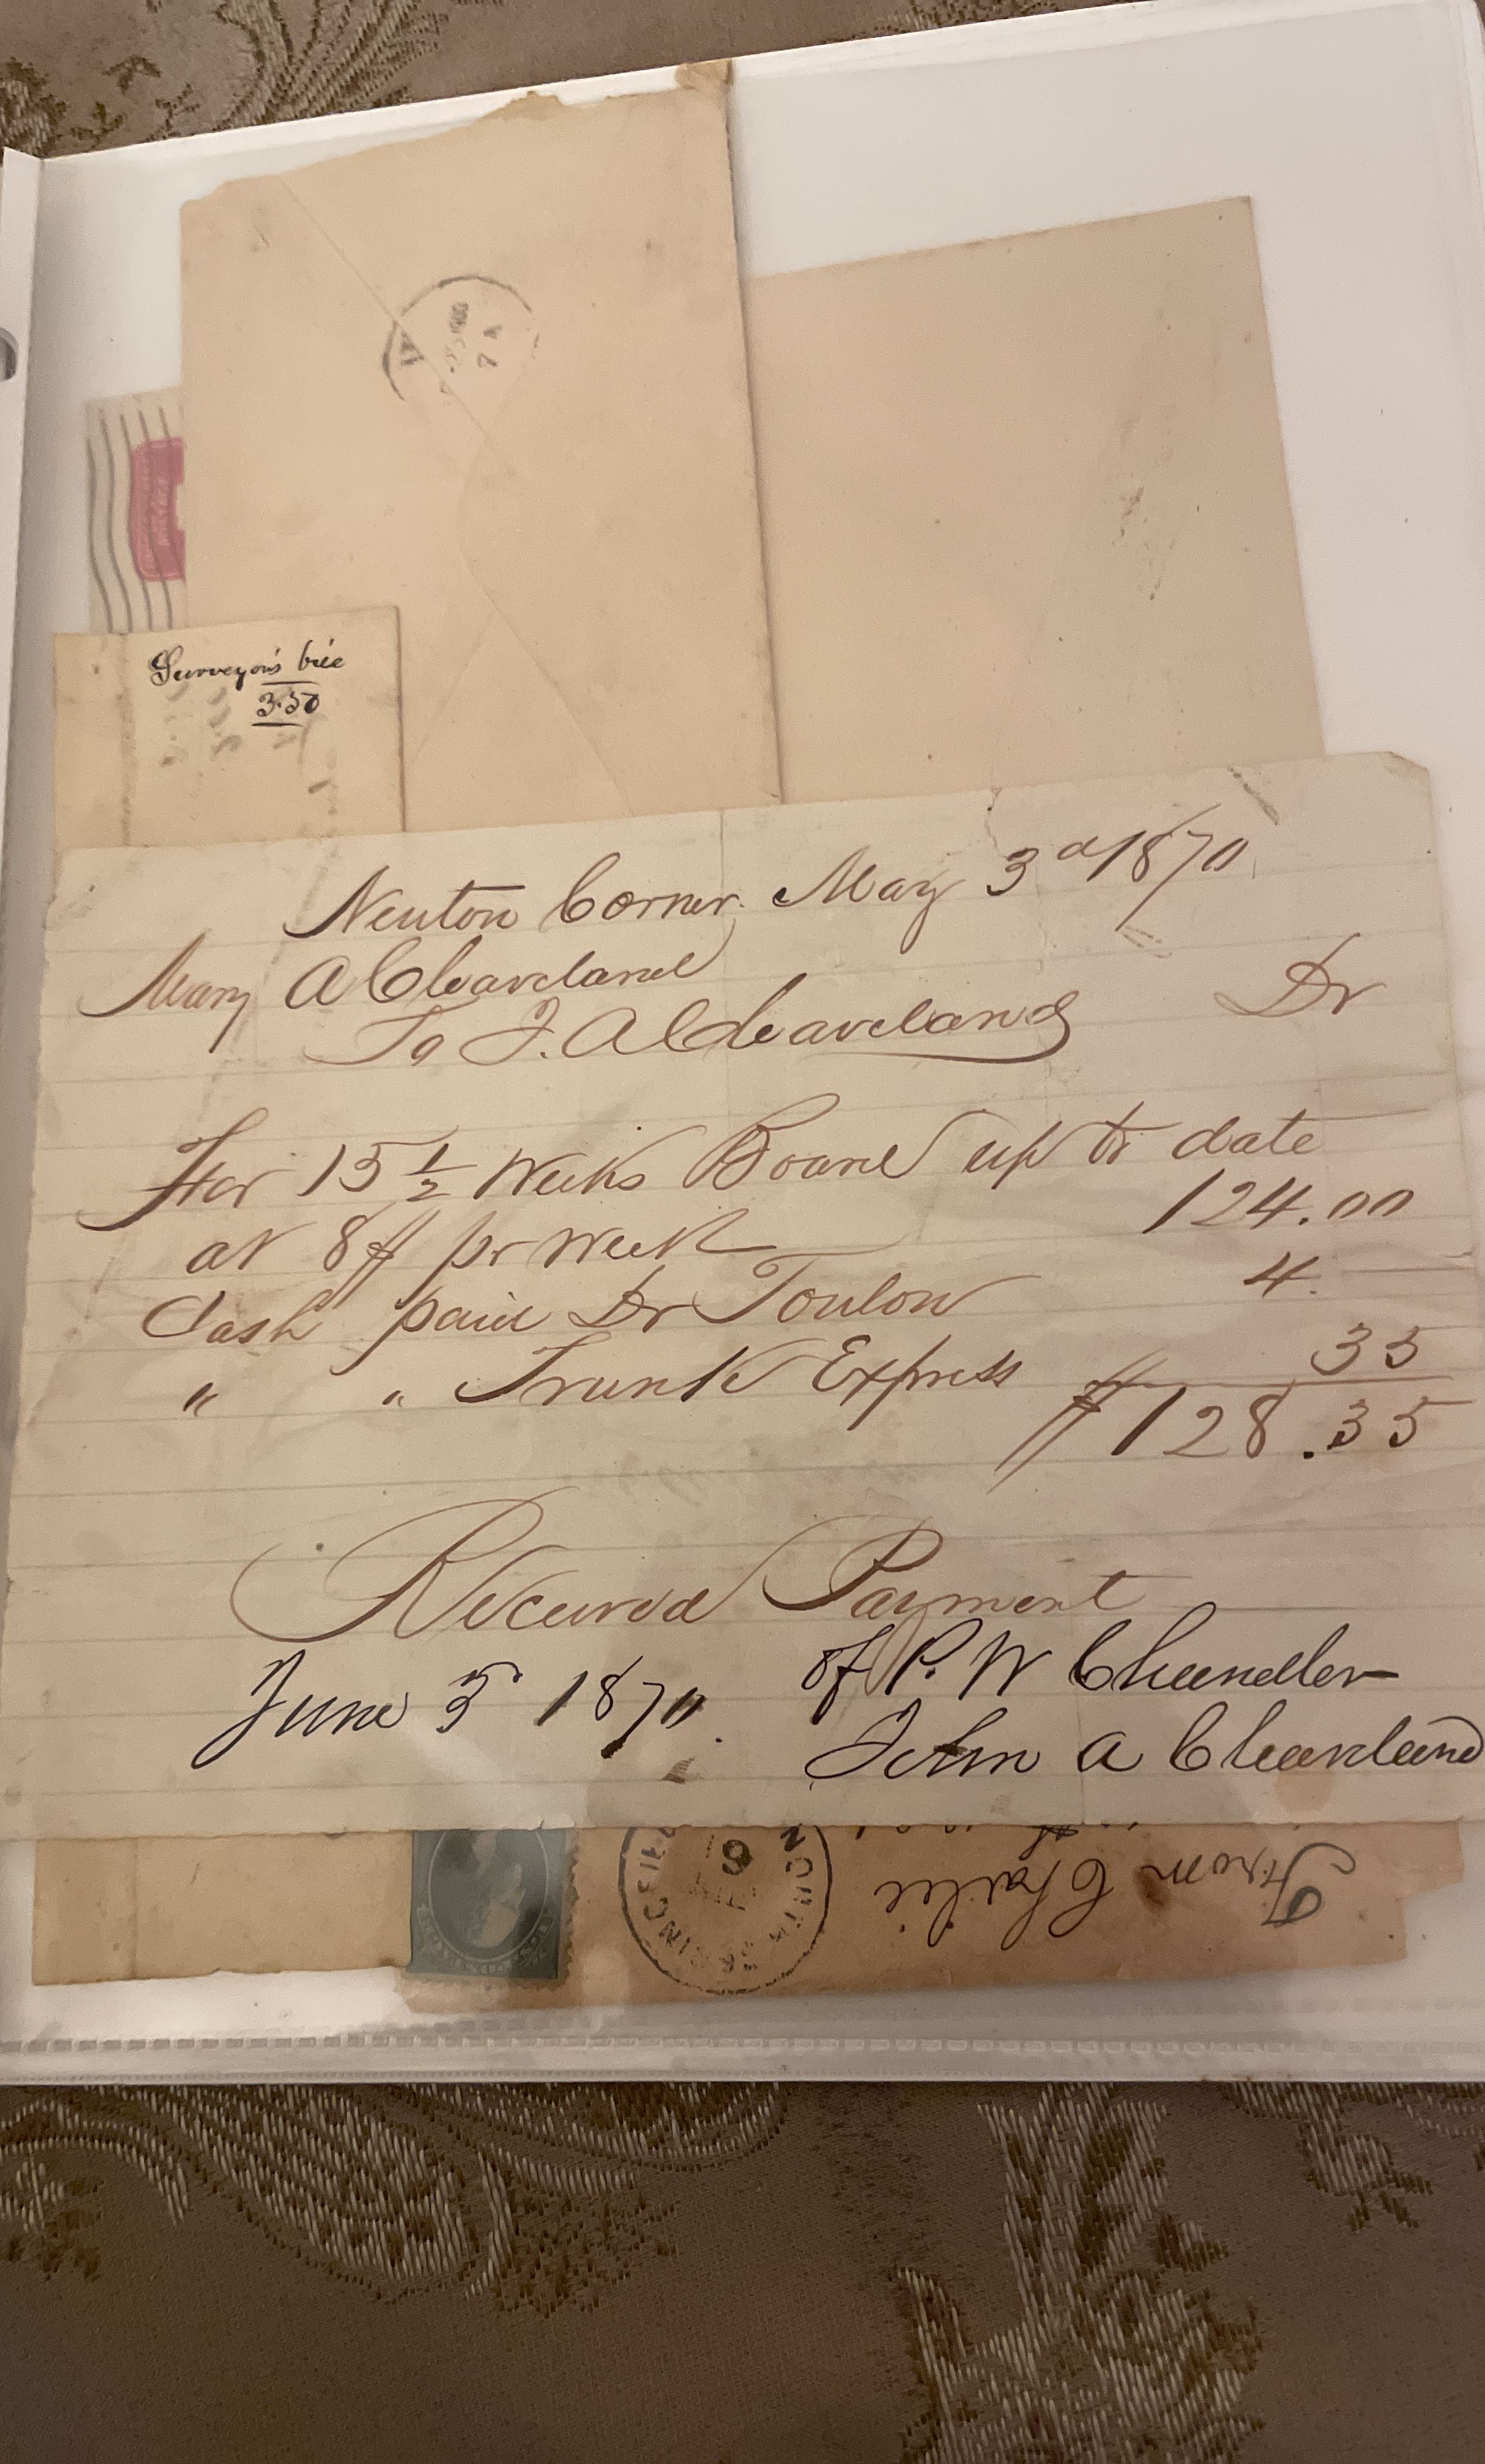 Surveyor's bill
3.50
Newton Corner May 3d 1870
Mary A Cleaveland Dr
To J. A Cleaveland
For 15 1/2 Weeks Board up to date
at 8$ pr Week 124.00
Cash paid Dr Toulon 4.
" " Trunk Express 35
$128.35
Received Payment
of P. W Chandler
June 3d 1870.
John A Cleaveland
From Charlie